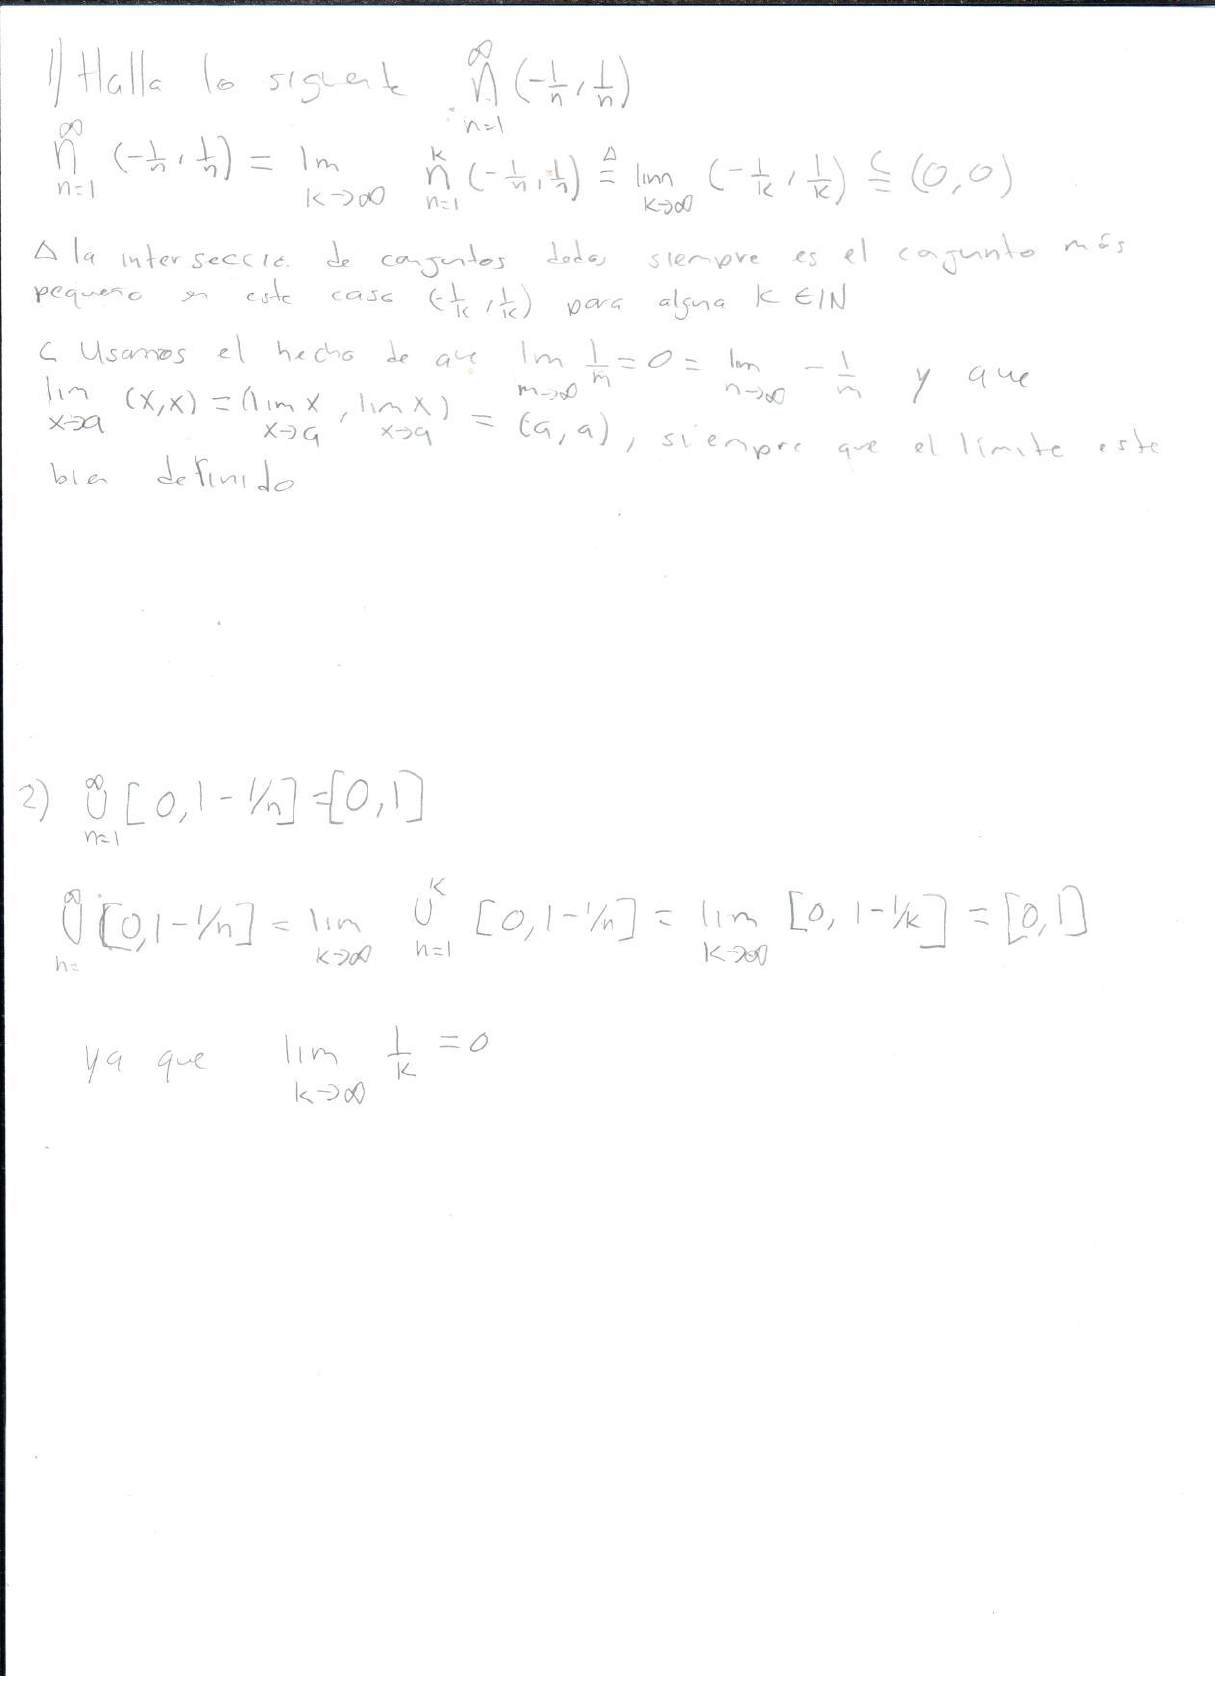 1) Halla lo siguente ∞∩n=1 (-1/n, 1/n)
∞∩n=1 (-1/n, 1/n) = lim k→∞ k∩n=1 (-1/n, 1/n) ≜ lim k→∞ (-1/k, 1/k) ⊆ (0,0)
Δ la intersecció. de conjuntos dados siempre es el conjunto más
pequeño en este caso (-1/k, 1/k) para alguna k ∈ ℕ
⊂ Usamos el hecho de que lim m→∞ 1/m = 0 = lim n→∞ -1/m y que
lim x→a (x,x) = (lim x→a x, lim x→a x) = (a,a), siempre que el límite este
bien definido
2) ∞∪n=1 [0,1-1/n] = [0,1]
∞∪n= [0,1-1/n] = lim k→∞ k∪n=1 [0,1-1/n] = lim k→∞ [0,1-1/k] = [0,1]
ya que lim k→∞ 1/k = 0